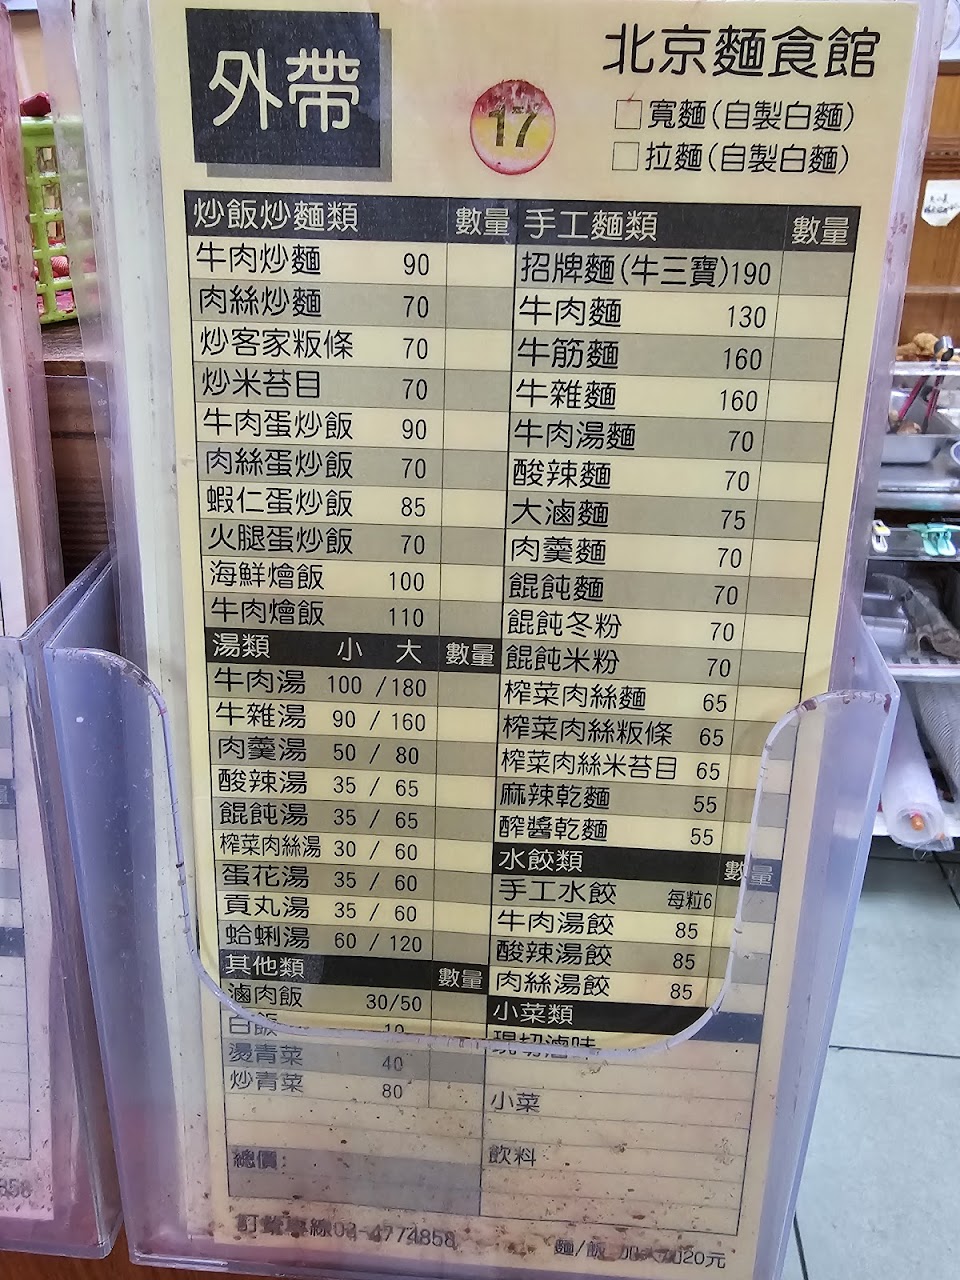 外帶
17
北京麵食館
□寬麵(自製白麵)
□拉麵(自製白麵)
炒飯炒麵類 數量
牛肉炒麵 90
肉絲炒麵 70
炒客家粄條 70
炒米苔目 70
牛肉蛋炒飯 90
肉絲蛋炒飯 70
蝦仁蛋炒飯 85
火腿蛋炒飯 70
海鮮燴飯 100
牛肉燴飯 110
湯類 小 大 數量
牛肉湯 100 /180
牛雜湯 90 / 160
肉羹湯 50 / 80
酸辣湯 35 / 65
餛飩湯 35 / 65
榨菜肉絲湯 30 / 60
蛋花湯 35 / 60
貢丸湯 35 / 60
蛤蜊湯 60 / 120
其他類 數量
滷肉飯 30/50
白飯 10
燙青菜 40
炒青菜 80
總價:
手工麵類 數量
招牌麵(牛三寶)190
牛肉麵 130
牛筋麵 160
牛雜麵 160
牛肉湯麵 70
酸辣麵 70
大滷麵 75
肉羹麵 70
餛飩麵 70
餛飩冬粉 70
餛飩米粉 70
榨菜肉絲麵 65
榨菜肉絲粄條 65
榨菜肉絲米苔目 65
麻辣乾麵 55
醡醬乾麵 55
水餃類 數量
手工水餃 每粒6
牛肉湯餃 85
酸辣湯餃 85
肉絲湯餃 85
小菜類
現切滷味
小菜
飲料
線03-4774858
麵/飯 加20元